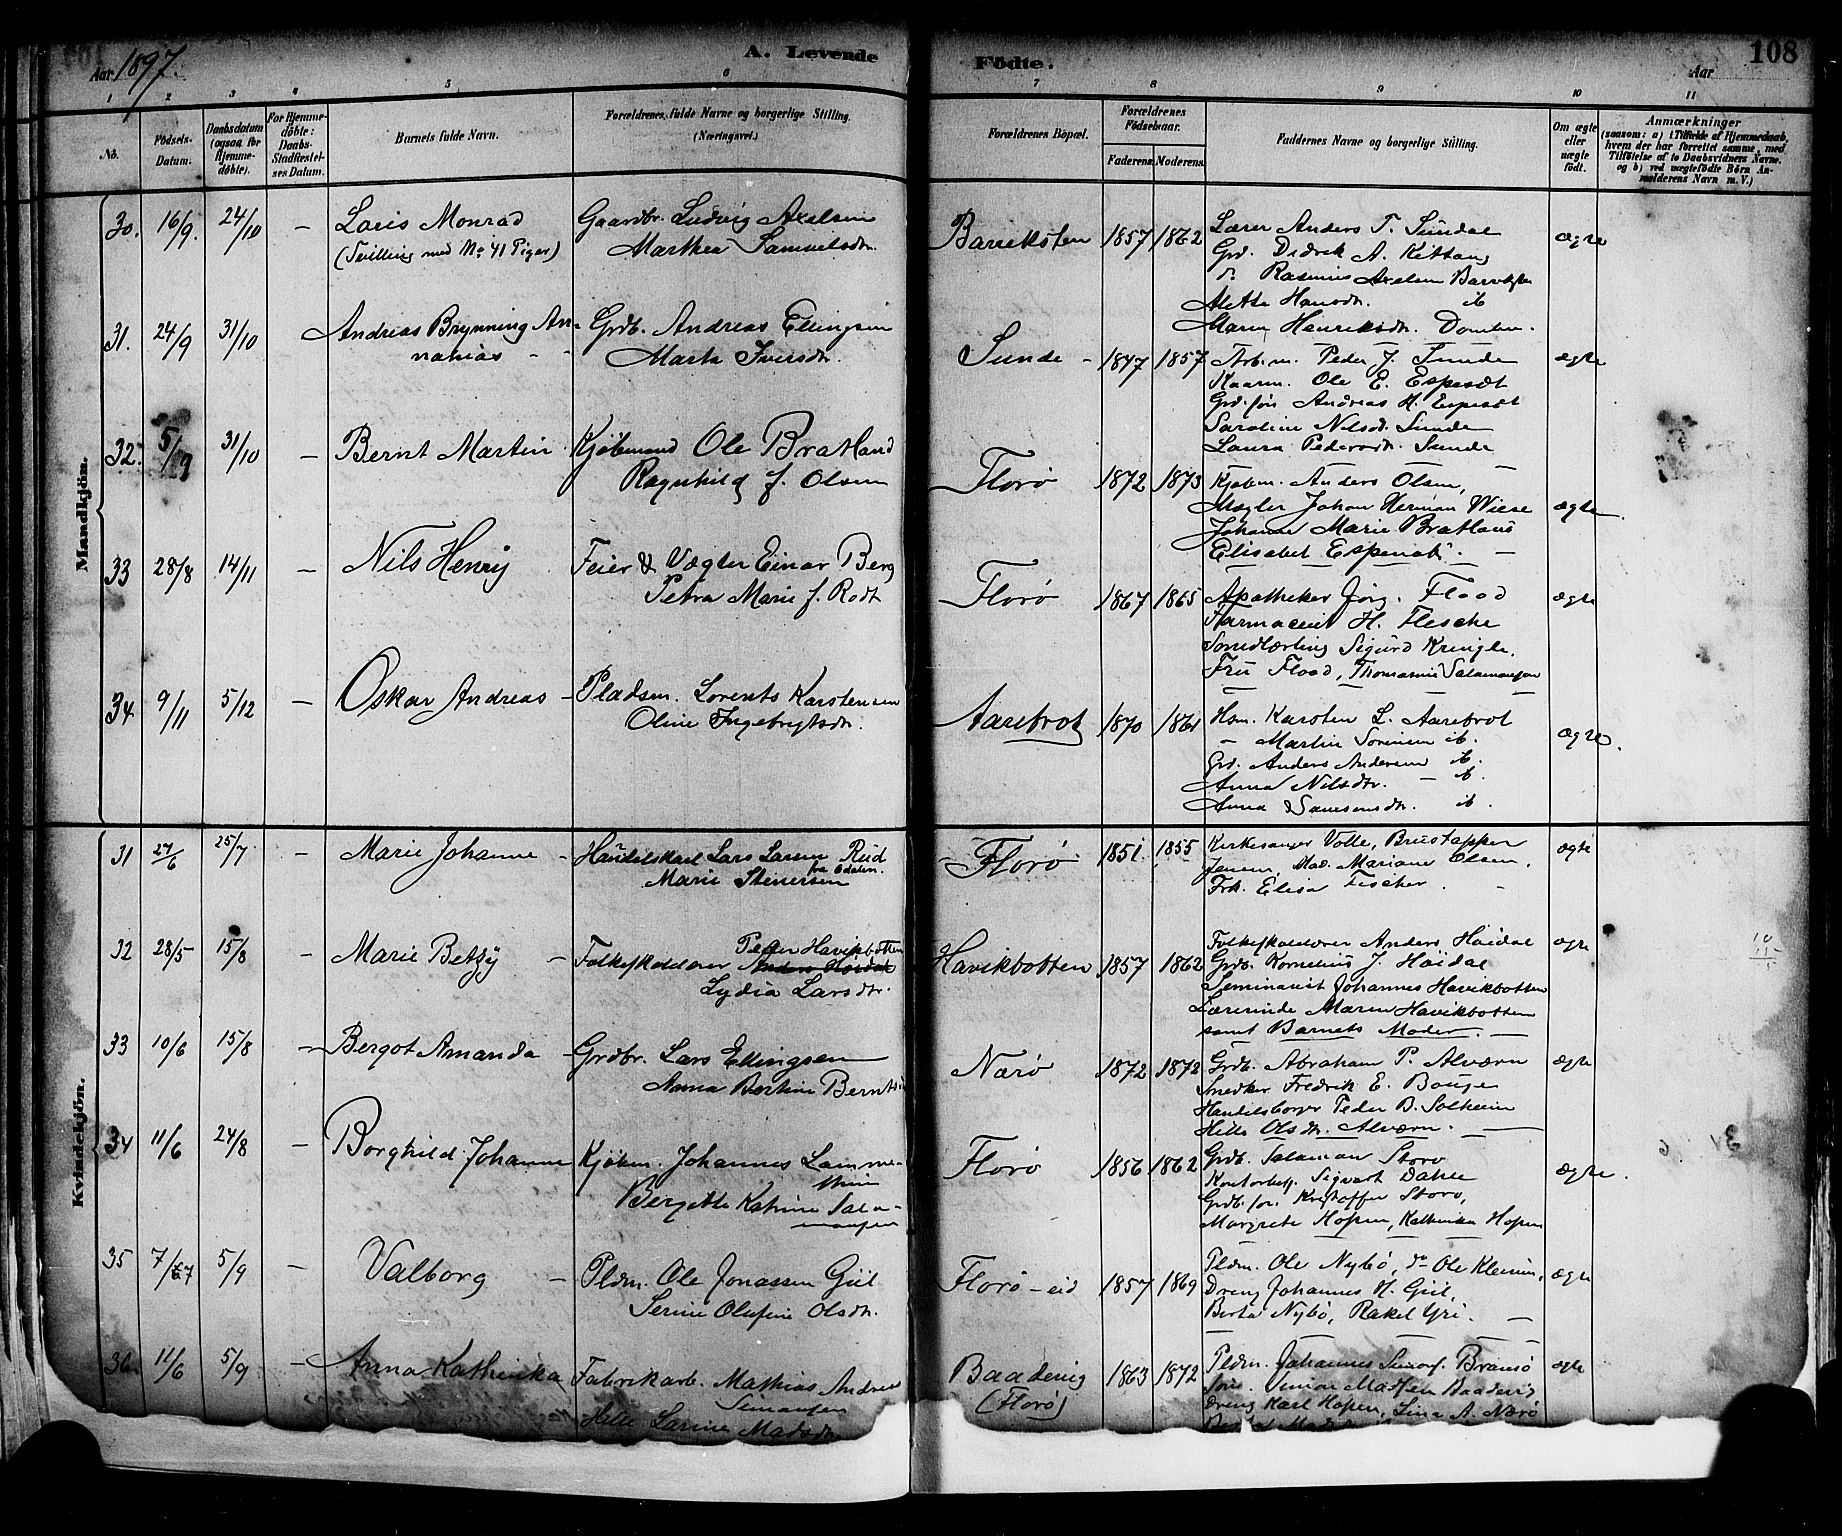 Aar 1897. A. Levende Födte. Aar 108
1 2 3 4 5 6 7 8 9 10 11
No. Födsels-Datum. Daabsdatum (ogsaa for Hjemme-döbte). For Hjemme-döbte: Daabs-Stadfæstel-ses Datum. Barnets fulde Navn. Forældrenes fulde Navne og borgerlige Stilling. (Næringsvei.) Forældrenes Bopæl. Forældrenes Födselsaar. Faderens. Moderens. Faddernes Navne og borgerlige Stilling. Om ægte eller uægte födt. Anmærkninger
(saasom: a) i Tilfælde af Hjemmedaab,
hvem der har forrettet samme, med
Tilföielse af to Daabsvidners Navne.
og b) ved uægtefödte Börn An-
melderens Navn m. V.)
Mandkjön.
30. 16/9. 24/10 - Laris Monrad
(Tvilling med No 41 Piger)
Gaardbr. Ludvig Axelsen
Marthea Samuelsdtr.
Bareksten 1857 1862
Lærer Anders T. Sundal
Grd. Didrik A. Kittang
do. Rasmus Axelsen
Alette Hansdtr. ib
Maren Henriksdtr.
ægte
31. 24/9 31/10 Andreas Brynning An-
nanias - -
Grdb. Andreas Ellingsen
Marta Iversdtr.
Sunde - 1847 1857
Arb.m. Peder J. Sunde
Kaarm. Ole E. Espeset
Grd.søn Andreas H. Espeset
Saroline Nilsd. Sunde
Laura Pedersdtr. Sunde
ægte
32. 5/9 31/10 - Bernt Martin
Kjøbmand Ole Bratland
Ragnhild f. Olsen
Florø 1872 1873
Kjøbm. Anders Olsen,
Mægler Johan Herman Wiese
Johanne Marie Bratland
Elisabet
ægte
33 28/8 14/11 - Nils Henrij
Feier & Vægter Einar Berg
Petra Marie f. Rodt
Florø 1867 1865
Apotheker Jörg. Flood
Farmaceut H. Flesche
Smedlærling Sigurd Kringle.
Fru Flood, Thomasine Salamonsen
ægte
34 9/11 5/12 - Oskar Andreas -
Pladsm. Lorents Karstensen
Oline Ingebrigtsdtr.
Aarebrot 1870 1861
Hsm. Karsten L. Aarebrot
- Martin Sørensen ib.
Grd. Anders Andersen ib.
Anna Nilsdtr. - ib.
Anna Samsonsdtr. ib.
ægte.
Kvindekjön.
31 27/6 25/7 - Marie Johanne -
Handelskarl Lars Larsen Rud
fra Odalen.
Marie Stenersen
Florø 1851. 1855
Kirkesanger Volle, Brustapper
Jensen, Mad. Mariane Olsen.
Frk. Elisa Fischer.
ægte
32 28/5 15/8 - Marie Betzy -
Peder Havikbotten
Folkeskolelærer Anders Høidal
Lydia Larsdtr.
Havikbotten 1857 1862
Folkeskolelærer Anders Høidal
Grdb. Kornelius J. Høidal
Seminarist Johannes Havikbotten
Lærerinde Maren Havikbotten
samt Barnets Moder.
ægte
33 10/6 15/8 - Bergot Amanda
Grdbr. Lars Ellingsen
Anna Bertine
Nærø 1872 1872
Grdb. Abraham P. Alværn
Snedker Fredrik E. Bauge
Handelsborger Peder B. Solheim
Hille Olsdtr. Alværn.
ægte
34 11/6 24/8 - Borghild Johanne
Kjøbm. Johannes
Bergitte Katrine Salo-
monsen
Florø 1856 1862
Grdb. Salaman Storø
Kontorbetj. Sigvart Dahle
Grdb.søn. Kristoffer Storø,
Margrete Hopen, Kathinka Hopen
ægte.
35 7/7 5/9 - Valborg -
Pldm. Ole Jonassen Giil
Serine Olufine Olsdtr.
Florø-eid 1857 1869
Pldm. Ole Nybø, do Ole Kleiven,
Dreng Johannes H. Giil,
Berta Nybø, Rakel Yri.
ægte
36. 11/6 5/9 - Anna Kathinka
Fabrikarb. Mathias Andreas
Simonsen
Hille Larine Madsdtr
Baadevig
(Florø)
1863 1872
Pldm. Johannes Simons. Brandsø
Madsen Baadevig
dreng Karl Hopen, Lina A. Nærø
ægte